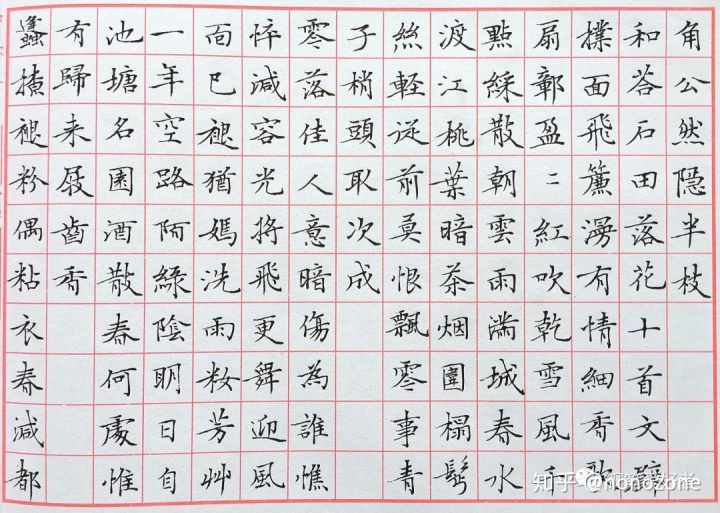 角公然隠半枝
和荅石田落花十首文
撲面飛簾漫有情細香歌
扇鄣盈〻紅吹乾雪風千
點綵散朝雲雨滿城春水
渡江桃葉暗茶烟圍榻鬂
絲軽從前莫恨飄零事青
子梢頭取次成
零落佳人意暗傷為誰憔
悴減容光將飛更舞迎風
面已褪猶嫣洗雨籹芳艸
一年空路陌綠陰明日自
池塘名園酒散春何處惟
有歸来屐齒香
褪粉偶粘衣春減都
知乎 @nonozone